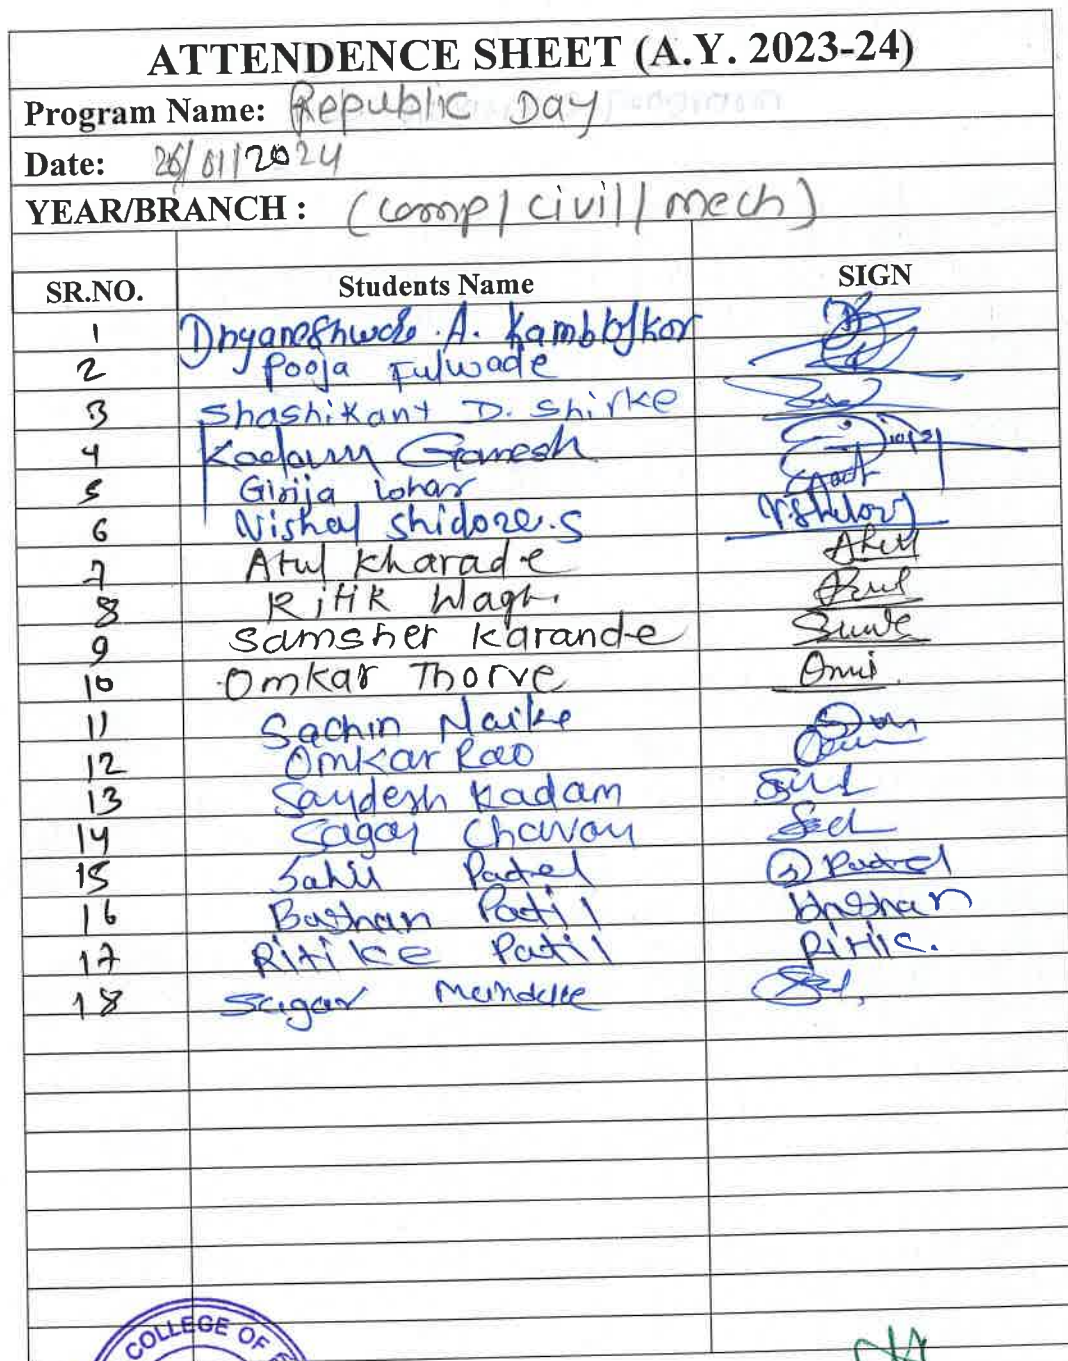 ATTENDENCE SHEET (A.Y. 2023-24)
Program Name: Republic Day
Date: 26/01/2024
YEAR/BRANCH : (comp/civil/mech)
SR.NO. Students Name SIGN
1 A.
2 Pooja Fulwade
3 Shashikant D. Shirke
4 Kadam Ganesh
5 Girija lohar
6 Vishal Shidore.S
7 Atul Kharade Atul
8 Ritik Wagh.
9 Samsher Karande
10 Omkar Thorve Omi
11 Sachin Naike
12 Omkar Rao
13 Saydesh Kadam
14 Sagar Chavan
15 Sahil Patel S Patel
16 Patil
17 Ritike Patil Ritic.
18 Sagar
COLLEGE OF